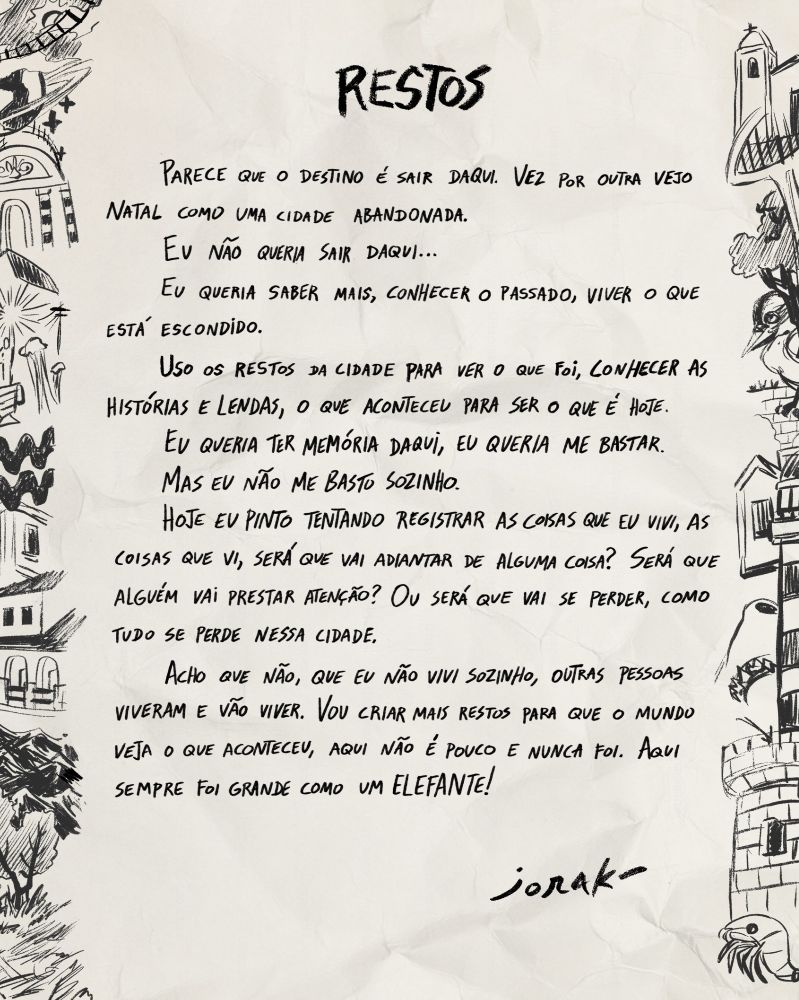 RESTOS
PARECE QUE O DESTINO É SAIR DAQUI. VEZ POR OUTRA VEJO
NATAL COMO UMA CIDADE ABANDONADA.
EU NÃO QUERIA SAIR DAQUI...
EU QUERIA SABER MAIS, CONHECER O PASSADO, VIVER O QUE
ESTÁ ESCONDIDO.
USO OS RESTOS DA CIDADE PARA VER O QUE FOI, CONHECER AS
HISTÓRIAS E LENDAS, O QUE ACONTECEU PARA SER O QUE É HOJE.
EU QUERIA TER MEMÓRIA DAQUI, EU QUERIA ME BASTAR.
MAS EU NÃO ME BASTO SOZINHO.
HOJE EU PINTO TENTANDO REGISTRAR AS COISAS QUE EU VIVI, AS
COISAS QUE VI, SERÁ QUE VAI ADIANTAR DE ALGUMA COISA? SERÁ QUE
ALGUÉM VAI PRESTAR ATENÇÃO? OU SERÁ QUE VAI SE PERDER, COMO
TUDO SE PERDE NESSA CIDADE.
ACHO QUE NÃO, QUE EU NÃO VIVI SOZINHO, OUTRAS PESSOAS
VIVERAM E VÃO VIVER. VOU CRIAR MAIS RESTOS PARA QUE O MUNDO
VEJA O QUE ACONTECEU, AQUI NÃO É POUCO E NUNCA FOI. AQUI
SEMPRE FOI GRANDE COMO UM ELEFANTE!
jorak-